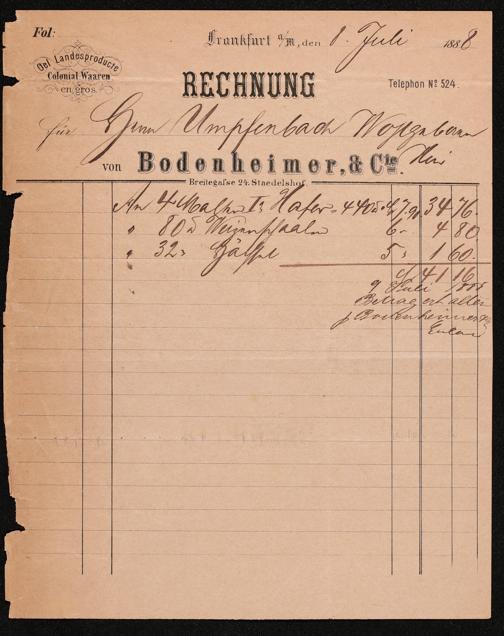 Fol:
Frankfurt a/M, den 8. Juli 1888
Oel Landesproducte
Colonial-Waaren
en gros.
RECHNUNG
Telephon No 524.
für Herrn Umpfenbach
von Bodenheimer, & Cie. Hier
Breitegasse 24. Staedelshof.
An 4 Malter Ia Hafer = 440 7.90 34 76.
" 80 6.- 4 80
" 32 5 " 1 60.
41 16.
9 Juli 1888
Betrag erhalten
Bodenheimer & Cie